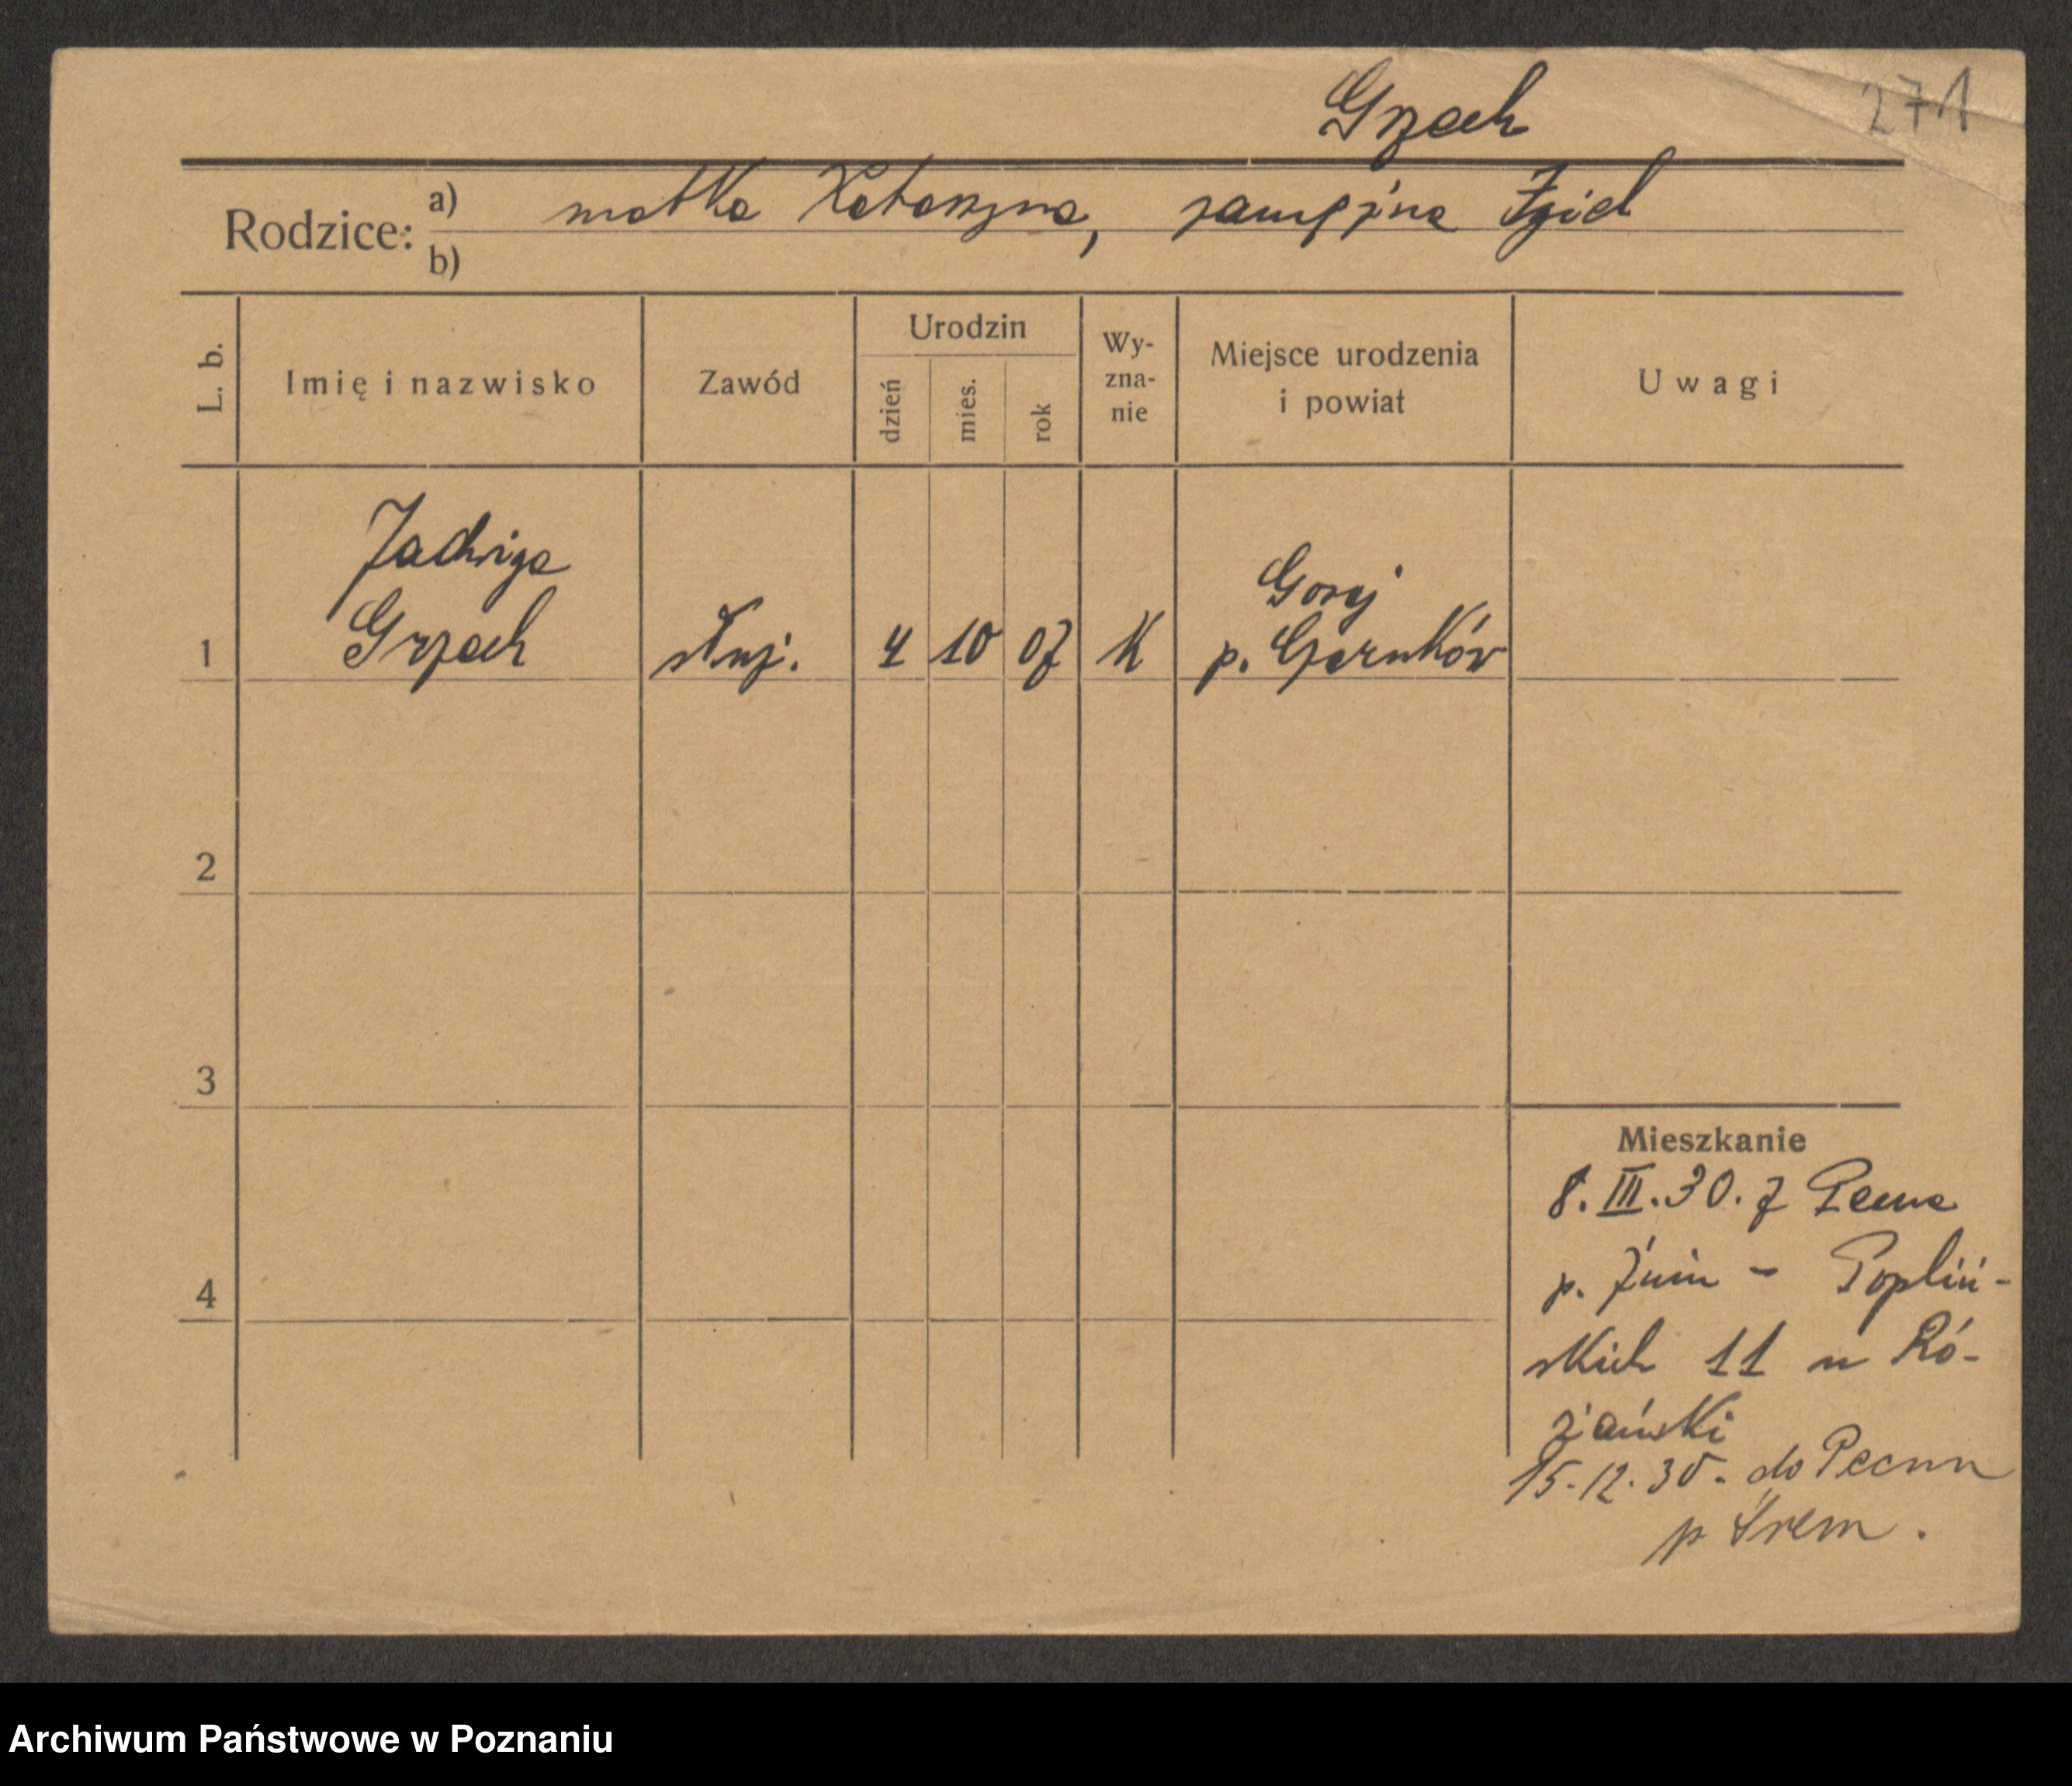 Grzech
271
Rodzice: a) matka Katarzyna, zamężna
b)
L. b.
Imię i nazwisko
Zawód
Urodzin
dzień
mies.
rok
Wy-
zna-
nie
Miejsce urodzenia
i powiat
Uwagi
Jadwiga
Grzech
1
służ.
4 10 07
K
Goraj
p. Czarnków
2
3
4
Mieszkanie
8. III. 30. z
p. Żnin - Popliń-
skich 11 u Ró-
żański
15.12.30. do Pecna
p Śrem.
Archiwum Państwowe w Poznaniu